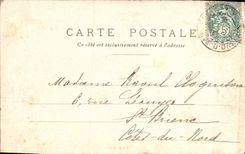 CARTE POSTALE
Ce côté est exclusivement réservé à l'adresse
5
Madame Raoul
6, rue
St Brieuc
Côtes-du-Nord